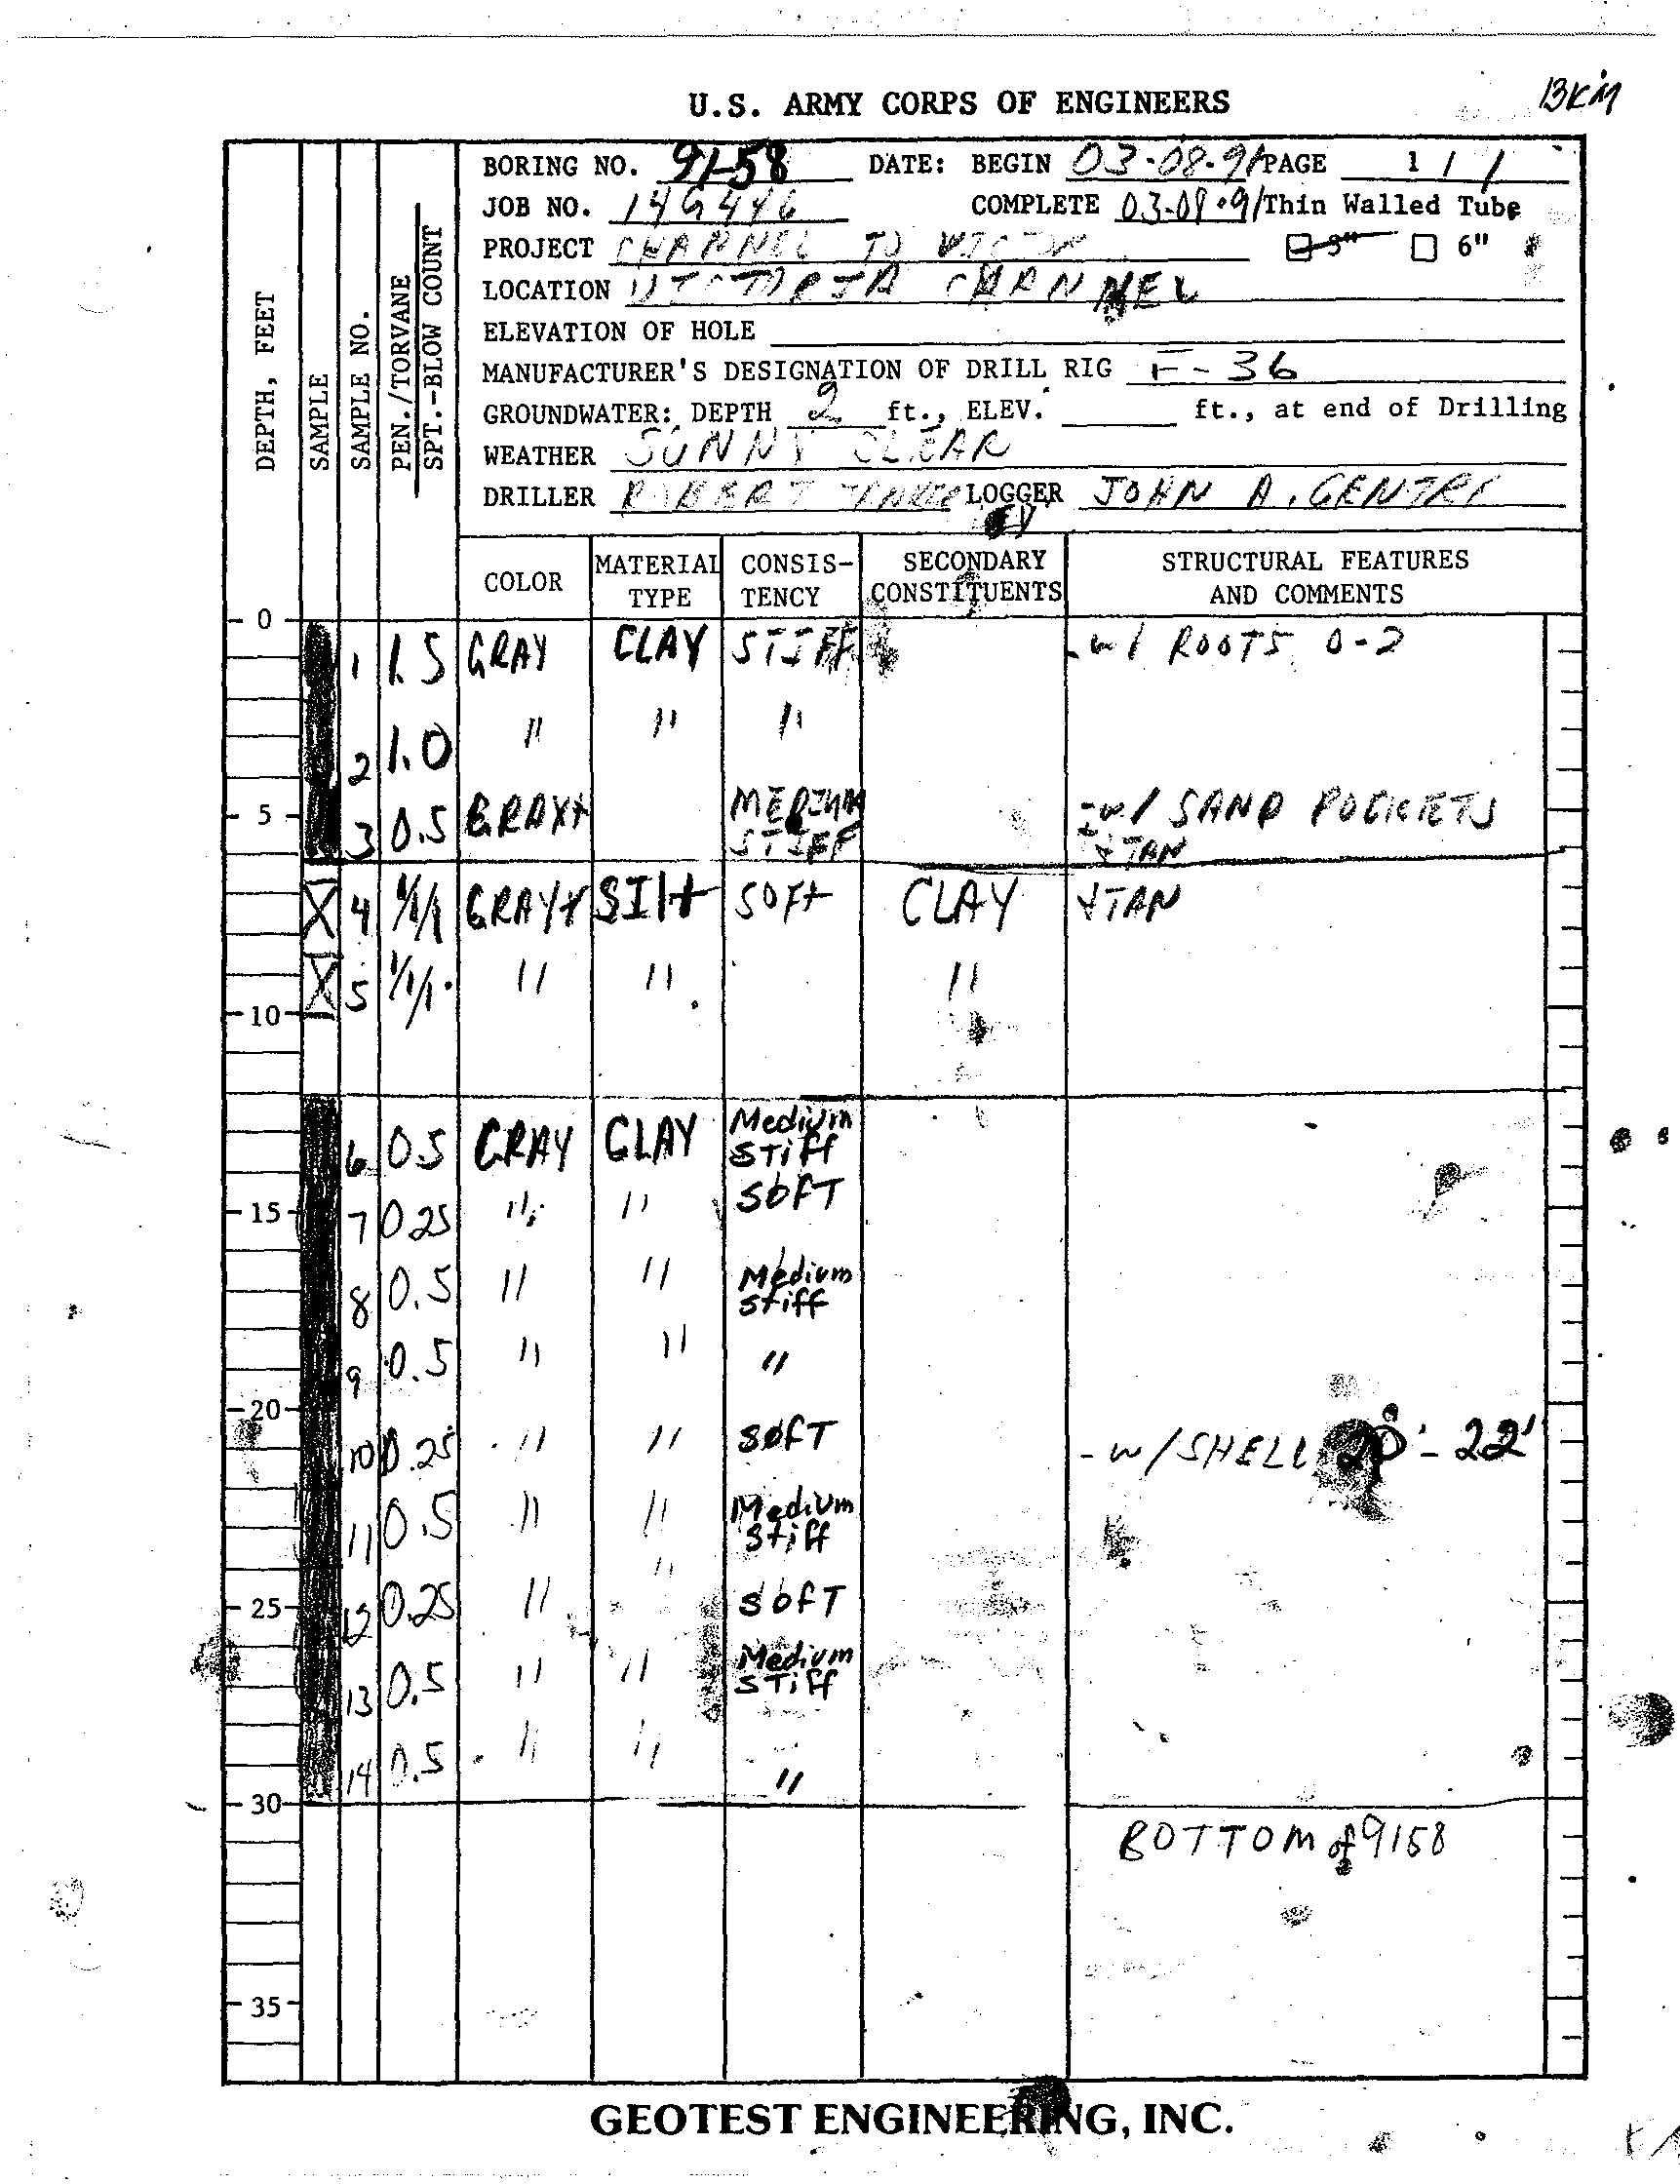 U.S. ARMY CORPS OF ENGINEERS
BKM
BORING NO. 91-58 DATE: BEGIN 03-08-91 PAGE 1 / 1
JOB NO. COMPLETE Thin Walled Tube
PROJECT CHANNEL TO 3" 6"
LOCATION VICTORIA CHANNEL
ELEVATION OF HOLE
MANUFACTURER'S DESIGNATION OF DRILL RIG F-36
GROUNDWATER: DEPTH 2 ft., ELEV. ft., at end of Drilling
WEATHER SUNNY CLEAR
DRILLER ROBERT LOGGER JOHN A. GENTRY
DEPTH, FEET
SAMPLE
SAMPLE NO.
PEN./TORVANE
SPT.-BLOW COUNT
COLOR MATERIAL TYPE CONSIS-TENCY SECONDARY CONSTITUENTS STRUCTURAL FEATURES AND COMMENTS
0
1 1.5 GRAY CLAY STIFF -w/ ROOTS 0-2
2 1.0 " " "
5
3 0.5 GRAY+ MEDIUM STIFF -w/ SAND POCKETS
+TAN
4 1/1/1 GRAY+ SILT SOFT CLAY +TAN
5 1/1/1 " " "
10
6 0.5 GRAY CLAY Medium STIFF
15
7 0.25 " " SOFT
8 0.5 " " Medium stiff
9 0.5 " " "
20
10 0.25 " " SOFT -w/SHELL 20'-22'
11 0.5 " " Medium stiff
25
12 0.25 " " SOFT
13 0.5 " " Medium STIFF
14 0.5 " " "
30
BOTTOM of 9158
35
GEOTEST ENGINEERING, INC.